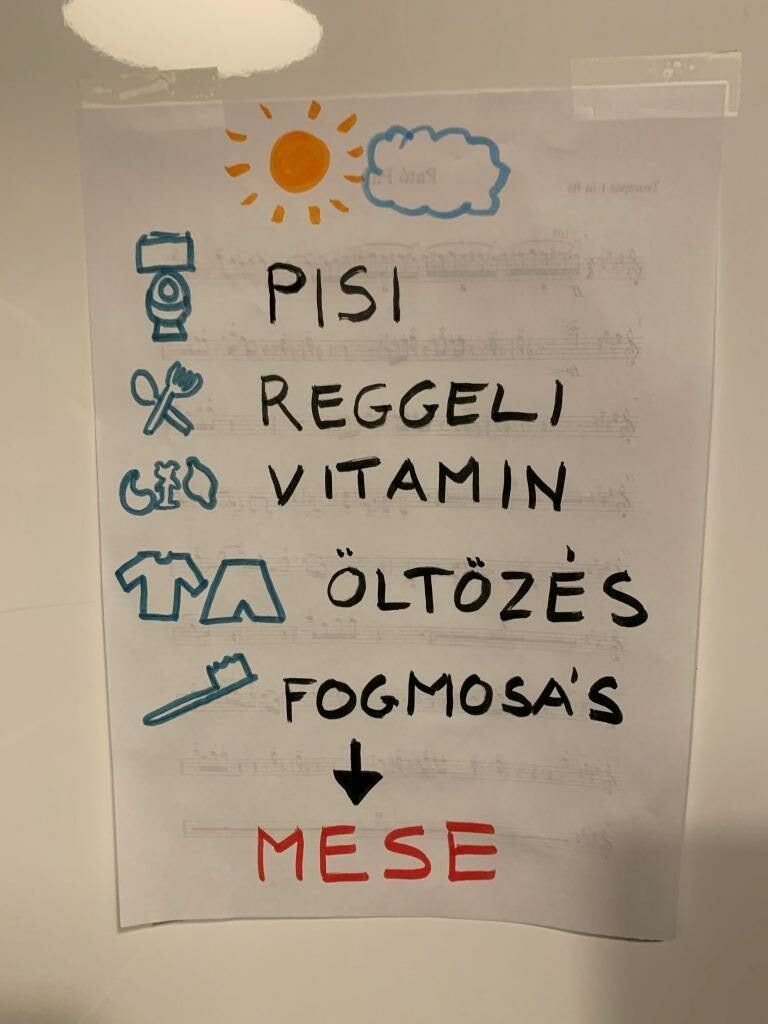 PISI
REGGELI
VITAMIN
ÖLTÖZÉS
FOGMOSÁS
MESE